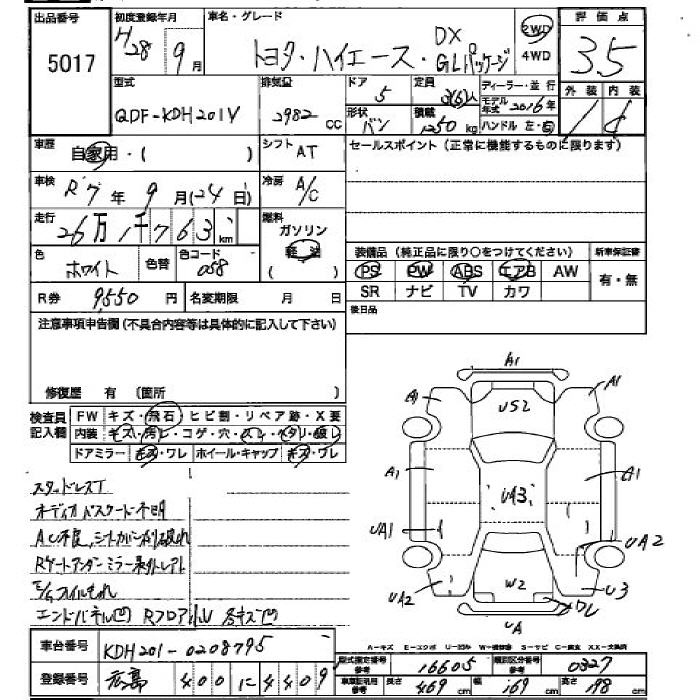 出品番号 初度登録年月 車名・グレード 評価点
5017 H28 9月 トヨタ・ハイエース・DX GLパッケージ 2WD 4WD 3.5
型式 排気量 ドア 定員 ディーラー・並行 外装 内装
QDF-KDH201V 2982 cc 5 3(6)人 モデル年式 2016年
形状 バン 積載 1250 kg ハンドル 左・右
車歴 自家用・( ) シフト AT セールスポイント(正常に機能するものに限ります)
車検 R7年 9月(24日) 冷房 A/C
走行 26万1千763 km 燃料 ガソリン 軽油 ( )
色 ホワイト 色替 色コード 058
装備品(純正品に限り○をつけてください) 新車保証書
PS PW ABS エアB AW 有・無
SR ナビ TV カワ
R券 9550円 名変期限 月 日 後日品
注意事項申告欄(不具合内容等は具体的に記入して下さい)
修復歴 有 (箇所 )
検査員記入欄 FW キズ・飛石・ヒビ割・リペア跡・X要
内装 キズ・汚レ・コゲ・穴・スレ・ヘタリ・破レ
ドアミラー キズ・ワレ ホイール・キャップ キズ・ワレ
スタッドレスT
エンドパネル凹 Rフロア
A1
A1 US2 A1
A1 UA3 A1
UA1 UA2
UA2 W2 U3
UA ワレ
A-キズ E-エクボ U-凹み W-補修跡 S-サビ C-腐食 XX-交換済
車台番号 KDH201-0208795
型式指定番号 参考 16605 類別区分番号 参考 0327
登録番号 広島 400に4409
車車証記用 参考 長さ 469 cm 幅 169 cm 高さ 198 cm